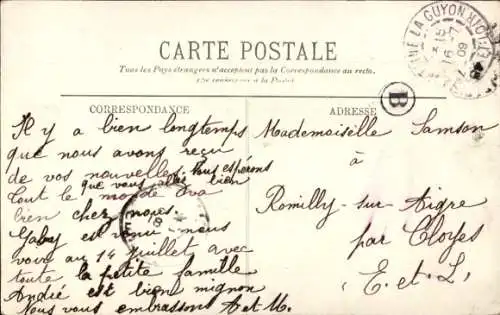 CARTE POSTALE
Tous les Pays étrangers n'acceptent pas la Correspondance au recto,
à la Poste
CORRESPONDANCE
ADRESSE
B
LA GUYON
16
09
Il y a bien longtemps
que nous avons reçu
de vos nouvelles. Nous espérons
que vous allez bien
Tout le monde va
bien chez nous.
Gaby est venu nous
voir au 14 Juillet avec
toute la petite famille
André est bien mignon
Nous vous embrassons A et M.
Mademoiselle Samson
à
Romilly-sur-Aigre
par Cloyes
E. et L.